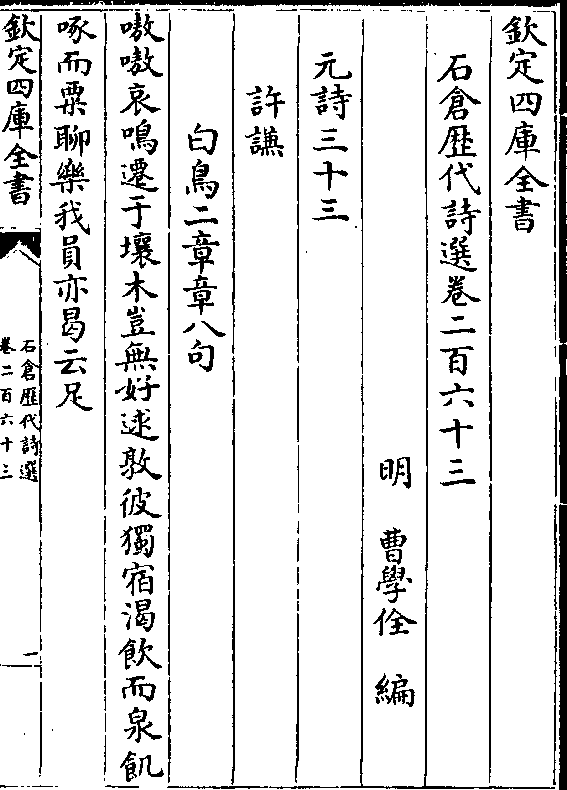 欽定四庫全書
石倉歴代詩選卷二百六十三
明　曹學佺　編
元詩三十三
許謙
白鳥二章章八句
嗷嗷哀鳴遷于壤木豈無好逑敦彼獨宿渴飲而泉飢
啄而粟聊樂我員亦曷云足
欽定四庫全書
石倉歴代詩選
卷二百六十三
一